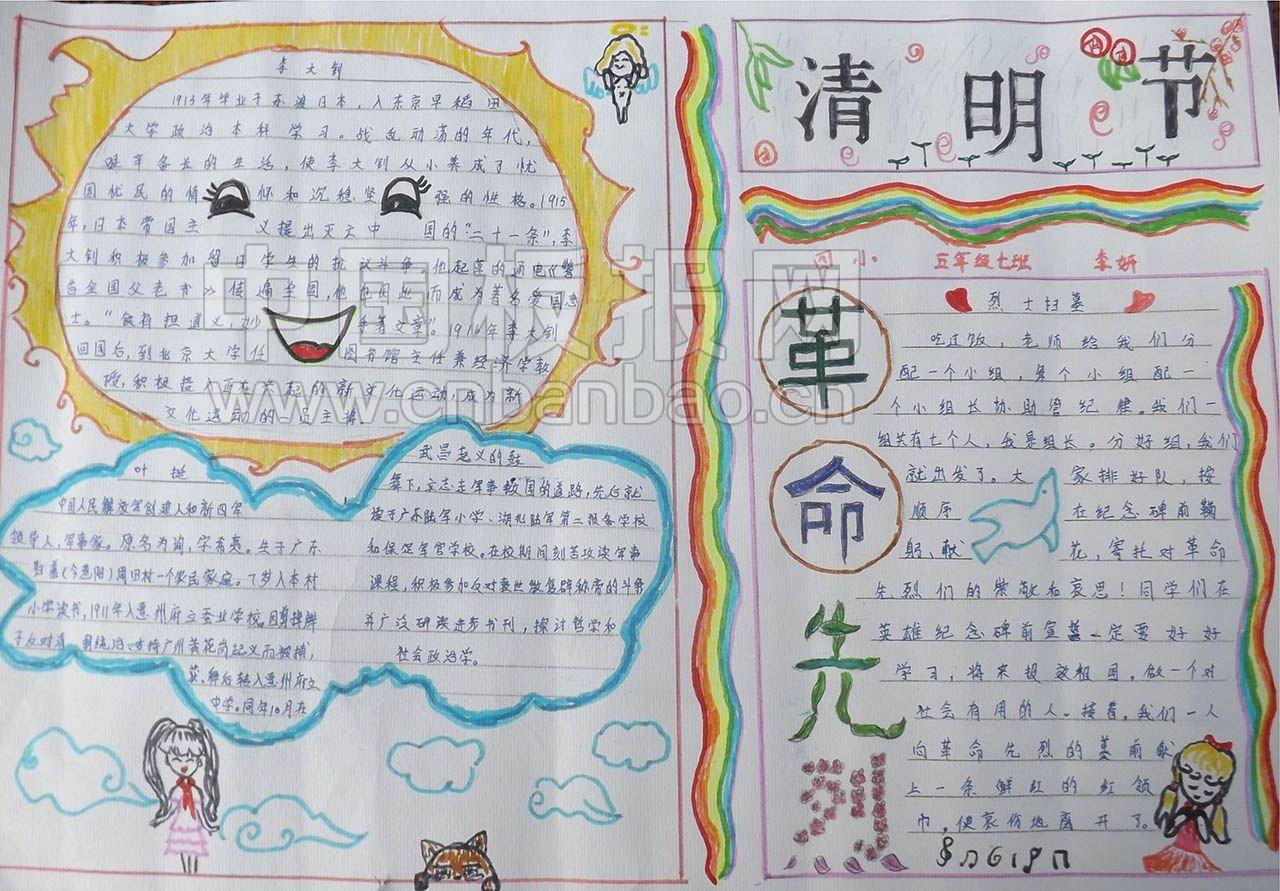 李大钊
1913年毕业于东渡日本，入东京早稻田
大学政治本科学习。战乱动荡的年代，
艰辛备长的生活，使李大钊从小养成了忧
国忧民的情怀和沉稳坚强的性格。1915
年，日本帝国主义提出灭亡中国的“二十一条”，李
大钊积极参加留日学生的抗议斗争，他起草的通电《警
告全国父老书》传遍全国，他也因此而成为著名爱国志
士。“铁肩担道义，妙手著文章”。1916年李大钊
回国后，到北京大学任图书馆主任兼经济学教
授，积极投入正在兴起的新文化运动，成为新
文化运动的一员主将。
叶挺
中国人民解放军创建人和新四军
领导人，军事家。原名为询，字希夷。生于广东
归善(今惠阳)周田村一个农民家庭。7岁入本村
小学读书，1911年入惠州府立蚕业学校，因剪掉辫
子反对清朝统治、支持广州黄花岗起义而被捕，
获释后转入惠州府立
中学。同年10月在
武昌起义的鼓
舞下，立志走军事救国的道路，先后就
读于广东陆军小学、湖北陆军第二预备学校
和保定军官学校。在校期间刻苦攻读军事
课程，积极参加反对袁世凯复辟称帝的斗争
并广泛研读进步书刊，探讨哲学和
社会政治学。
清明节
小 五年级七班 李妍
革命先烈
烈士扫墓
吃过饭，老师给我们分
配一个小组，每个小组配一
个小组长协助管纪律。我们一
组共有七个人，我是组长。分好组，我们
就出发了。大家排好队，按
顺序在纪念碑前鞠
躬、献花，寄托对革命
先烈们的崇敬和哀思！同学们在
英雄纪念碑前宣誓一定要好好
学习，将来报效祖国，做一个对
社会有用的人。接着，我们一人
向革命先烈的墓前献
上一条鲜红的红领
巾。便哀伤地离开了。
中国板报网
www.cnbanbao.cn